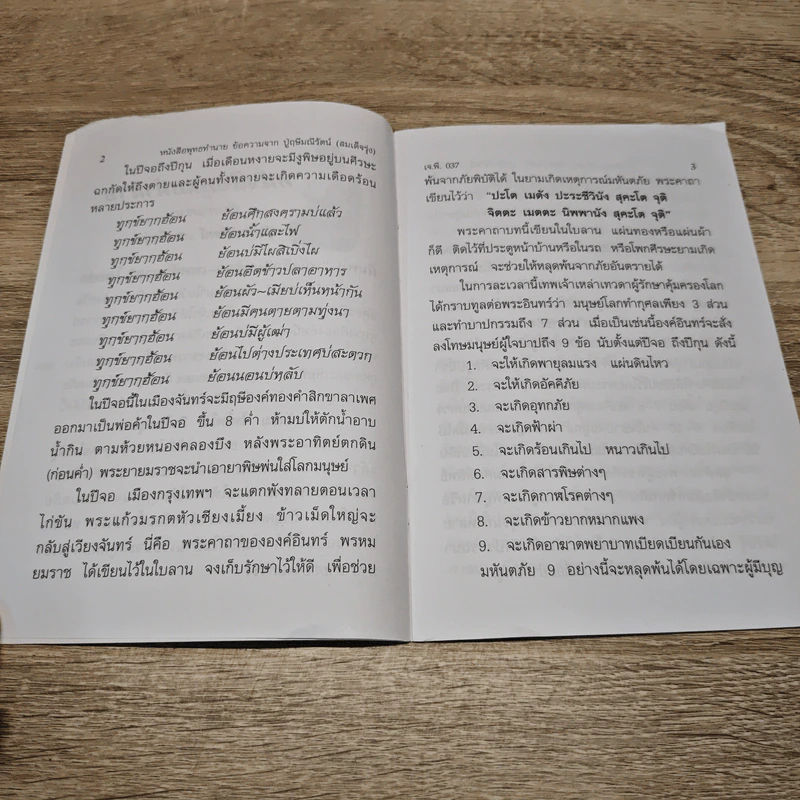 2 หนังสือพุทธทำนาย ข้อความจาก ปู่ฤษีมณีรัตน์ (สมเด็จรุ่ง)
ในปีจอถึงปีกุน เมื่อเดือนหงายจะมีงูพิษอยู่บนศีรษะ
ฉกกัดให้ถึงตายและผู้คนทั้งหลายจะเกิดความเดือดร้อน
หลายประการ
ทุกข์ยากฮ้อน ย้อนศึกสงครามบ่แล้ว
ทุกข์ยากฮ้อน ย้อนน้ำและไฟ
ทุกข์ยากฮ้อน ย้อนบ่มีไผสิเบิ่งไผ
ทุกข์ยากฮ้อน ย้อนอึดข้าวปลาอาหาร
ทุกข์ยากฮ้อน ย้อนผัว~เมียบ่เห็นหน้ากัน
ทุกข์ยากฮ้อน ย้อนมีคนตายตามทุ่งนา
ทุกข์ยากฮ้อน ย้อนบ่มีผู้เฒ่า
ทุกข์ยากฮ้อน ย้อนไปต่างประเทศบ่สะดวก
ทุกข์ยากฮ้อน ย้อนนอนบ่หลับ
ในปีจอนี้ในเมืองจันทร์จะมีฤษีองค์ทองคำสิกขาลาเพศ
ออกมาเป็นพ่อค้าในปีจอ ขึ้น 8 ค่ำ ห้ามบ่ให้ตักน้ำอาบ
น้ำกิน ตามห้วยหนองคลองบึง หลังพระอาทิตย์ตกดิน
(ก่อนค่ำ) พระยายมราชจะนำเอายาพิษพ่นใส่โลกมนุษย์
ในปีจอ เมืองกรุงเทพฯ จะแตกพังทลายตอนเวลา
ไก่ขัน พระแก้วมรกตหัวเชียงเมี้ยง ข้าวเม็ดใหญ่จะ
กลับสู่เวียงจันทร์ นี่คือ พระคาถาขององค์อินทร์ พรหม
ยมราช ได้เขียนไว้ในใบลาน จงเก็บรักษาไว้ให้ดี เพื่อช่วย
เจ.พี. 037 3
พ้นจากภัยพิบัติได้ ในยามเกิดเหตุการณ์มหันตภัย พระคาถา
เขียนไว้ว่า "ปะโต เมตัง ปะระชีวินัง สุคะโต จุติ
จิตตะ เมตตะ นิพพานัง สุคะโต จุติ"
พระคาถาบทนี้เขียนในใบลาน แผ่นทองหรือแผ่นผ้า
ก็ดี ติดไว้ที่ประตูหน้าบ้านหรือในรถ หรือโพกศีรษะยามเกิด
เหตุการณ์ จะช่วยให้หลุดพ้นจากภัยอันตรายได้
ในการละเวลานี้เทพเจ้าเหล่าเทวดาผู้รักษาคุ้มครองโลก
ได้กราบทูลต่อพระอินทร์ว่า มนุษย์โลกทำกุศลเพียง 3 ส่วน
และทำบาปกรรมถึง 7 ส่วน เมื่อเป็นเช่นนี้องค์อินทร์จะสั่ง
ลงโทษมนุษย์ผู้ใจบาปถึง 9 ข้อ นับตั้งแต่ปีจอ ถึงปีกุน ดังนี้
1. จะให้เกิดพายุลมแรง แผ่นดินไหว
2. จะให้เกิดอัคคีภัย
3. จะเกิดอุทกภัย
4. จะเกิดฟ้าผ่า
5. จะเกิดร้อนเกินไป หนาวเกินไป
6. จะเกิดสารพิษต่างๆ
7. จะเกิดกาฬโรคต่างๆ
8. จะเกิดข้าวยากหมากแพง
9. จะเกิดอาฆาตพยาบาทเบียดเบียนกันเอง
มหันตภัย 9 อย่างนี้จะหลุดพ้นได้โดยเฉพาะผู้มีบุญ